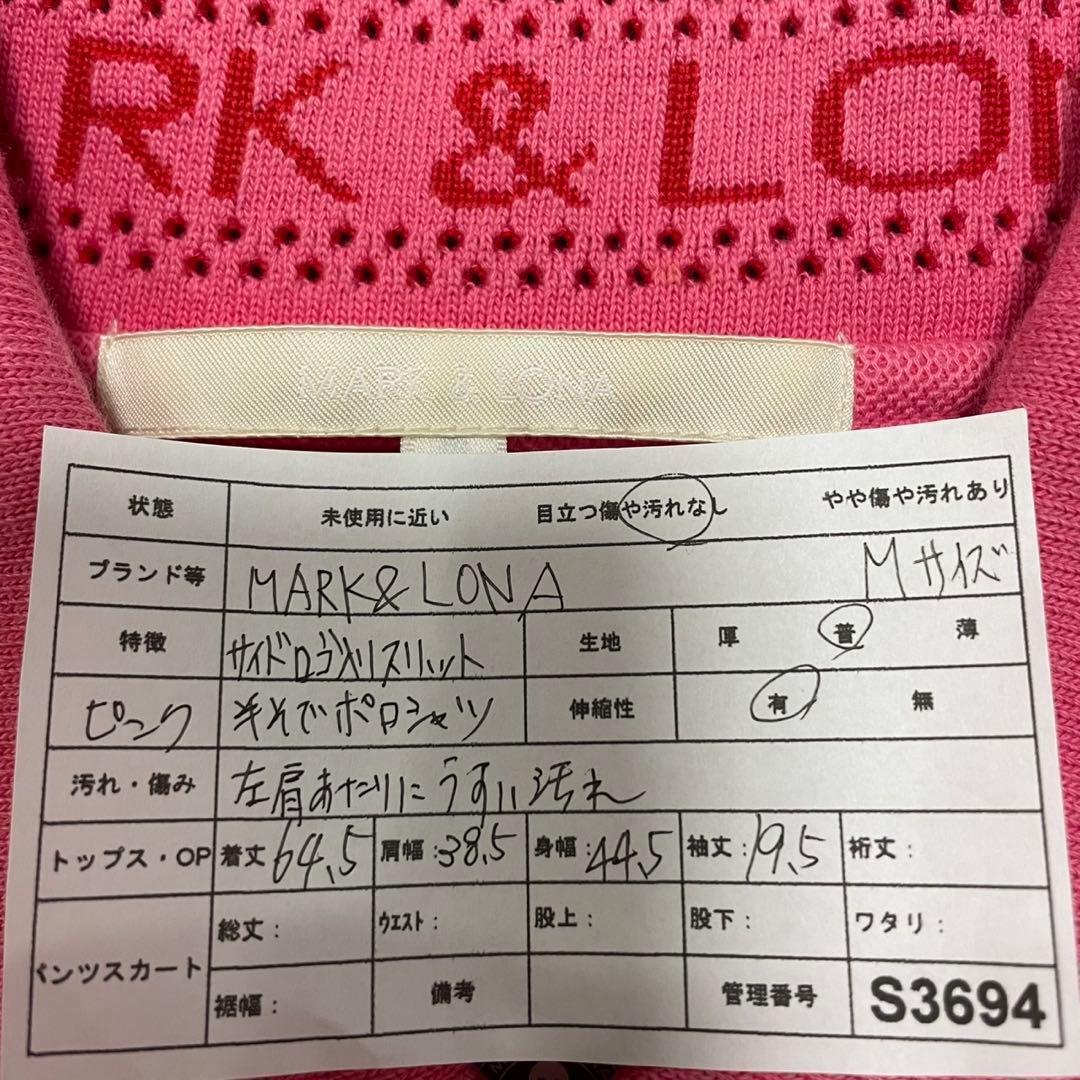 RK & LON
MARK & LONA
状態 未使用に近い 目立つ傷や汚れなし やや傷や汚れあり
ブランド等 MARK&LONA Mサイズ
特徴 サイドロゴ入リスリット 生地 厚 普 薄
ピンク 半そでポロシャツ 伸縮性 有 無
汚れ・傷み 左肩あたりにうすい汚れ
トップス・OP 着丈64.5 肩幅:38.5 身幅:44.5 袖丈:19.5 裄丈:
パンツスカート 総丈: ウエスト: 股上: 股下: ワタリ:
裾幅: 備考 管理番号 S3694